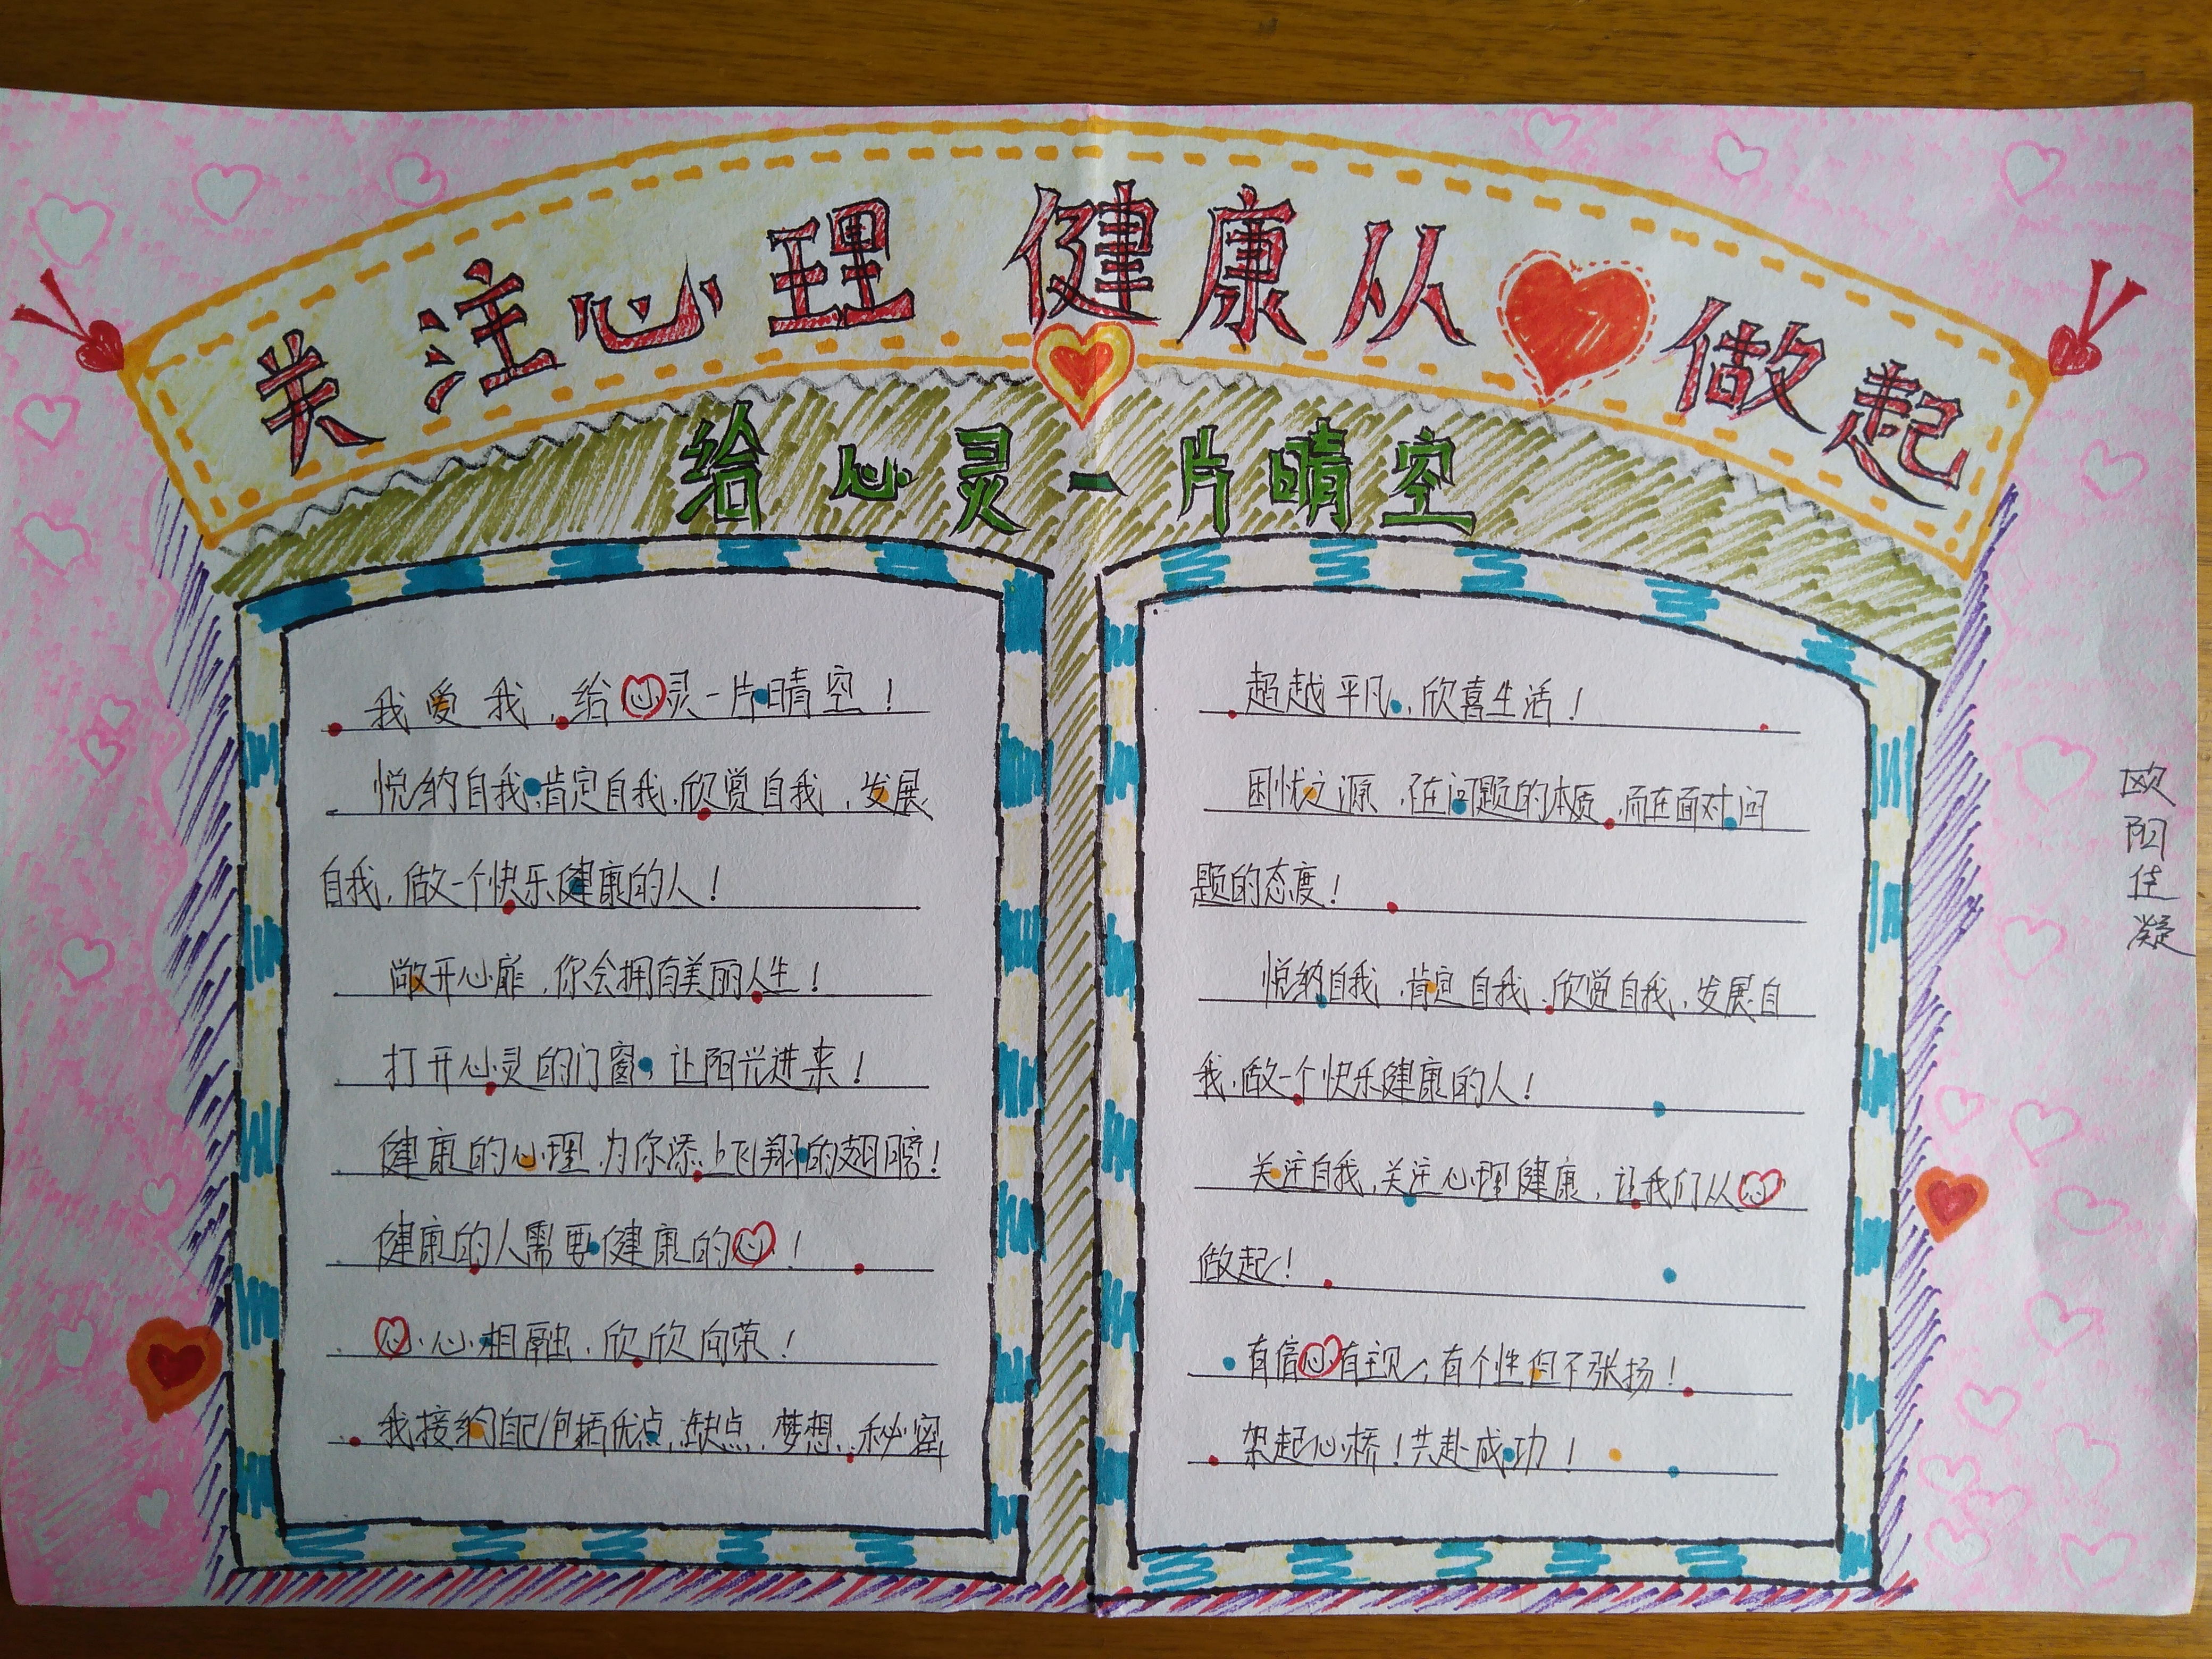 关注心理健康从❤做起
给心灵一片晴空
我爱我,给心灵一片晴空!
悦纳自我,肯定自我,欣赏自我,发展
自我,做一个快乐健康的人!
敞开心扉,你会拥有美丽人生!
打开心灵的门窗,让阳光进来!
健康的心理,为你添上飞翔的翅膀!
健康的人需要健康的心!
心心相融,欣欣向荣!
我接纳自己,包括优点,缺点,梦想,秘密
超越平凡,欣喜生活!
困忧之源,不在问题的本质,而在面对问
题的态度!
悦纳自我,肯定自我,欣赏自我,发展自
我,做一个快乐健康的人!
关注自我,关注心理健康,让我们从心
做起!
有信心有主见,有个性但不张扬!
架起心桥!共赴成功!
欧阳佳凝